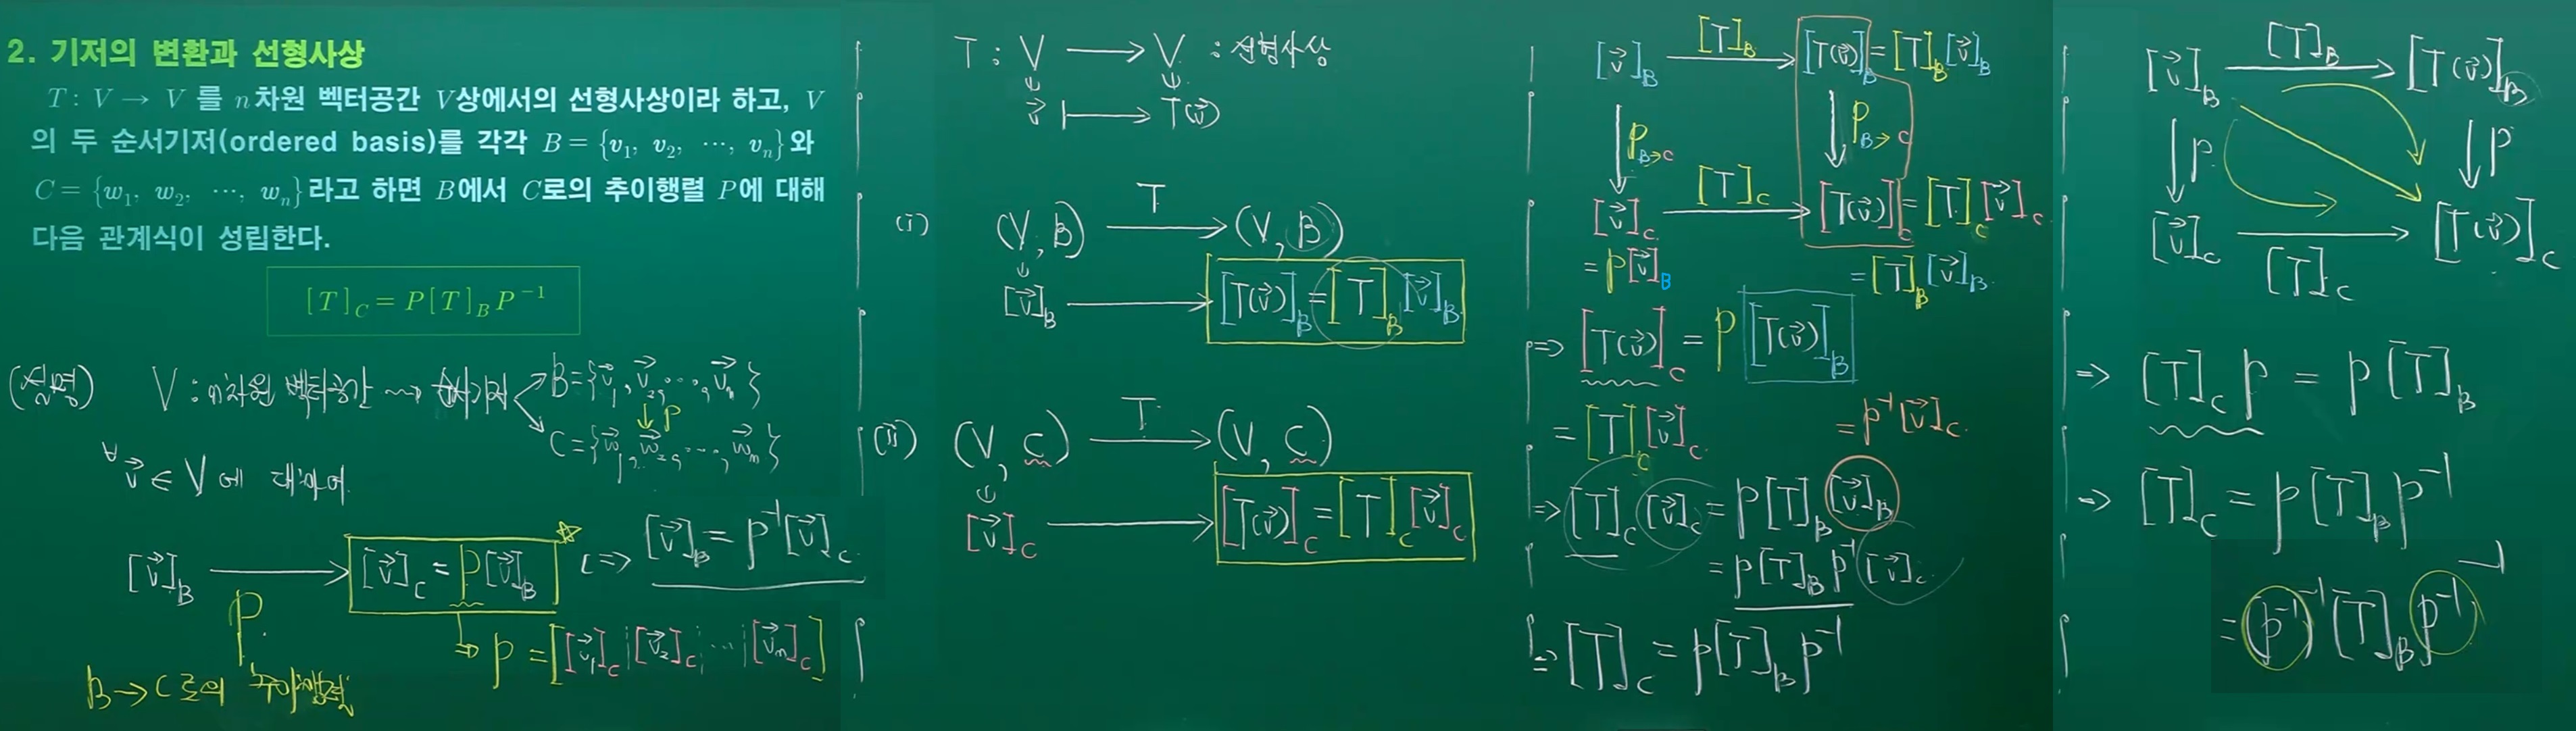 2. 기저의 변환과 선형사상
T : V → V 를 n차원 벡터공간 V상에서의 선형사상이라 하고, V
의 두 순서기저(ordered basis)를 각각 B = {v₁, v₂, ⋯, vₙ}와
C = {w₁, w₂, ⋯, wₙ}라고 하면 B에서 C로의 추이행렬 P에 대해
다음 관계식이 성립한다.
[T]_C = P[T]_B P⁻¹
(설명) V : n차원 벡터공간 ⇝ 순서기저 B = {v⃗₁, v⃗₂, ⋯, v⃗ₙ}
↓ P
C = {w⃗₁, w⃗₂, ⋯, w⃗ₙ}
∀v⃗ ∈ V 에 대하여
[v⃗]_B → [v⃗]_C = P[v⃗]_B ☆ ⇔ [v⃗]_B = P⁻¹[v⃗]_C
P
⇒ P = [[v⃗₁]_C | [v⃗₂]_C | ⋯ | [v⃗ₙ]_C]
B → C 로의 추이행렬
T : V → V : 선형사상
v⃗ ↦ T(v⃗)
T
(i) (V, B) → (V, B)
[v⃗]_B → [T(v⃗)]_B = [T]_B [v⃗]_B
T
(ii) (V, C) → (V, C)
[v⃗]_C → [T(v⃗)]_C = [T]_C [v⃗]_C
[T]_B
[v⃗]_B → [T(v⃗)]_B = [T]_B [v⃗]_B
↓ P_B→C ↓ P_B→C
[T]_C
[v⃗]_C → [T(v⃗)]_C = [T]_C [v⃗]_C
= P[v⃗]_B = [T]_B [v⃗]_B
⇒ [T(v⃗)]_C = P [T(v⃗)]_B
= [T]_C [v⃗]_C = P⁻¹[v⃗]_C
⇒ [T]_C [v⃗]_C = P[T]_B [v⃗]_B
= P[T]_B P⁻¹ [v⃗]_C
⇒ [T]_C = P[T]_B P⁻¹
[T]_B
[v⃗]_B → [T(v⃗)]_B
↓ P ↓ P
[v⃗]_C → [T(v⃗)]_C
[T]_C
⇒ [T]_C P = P [T]_B
⇒ [T]_C = P[T]_B P⁻¹
= (P⁻¹)⁻¹ [T]_B P⁻¹